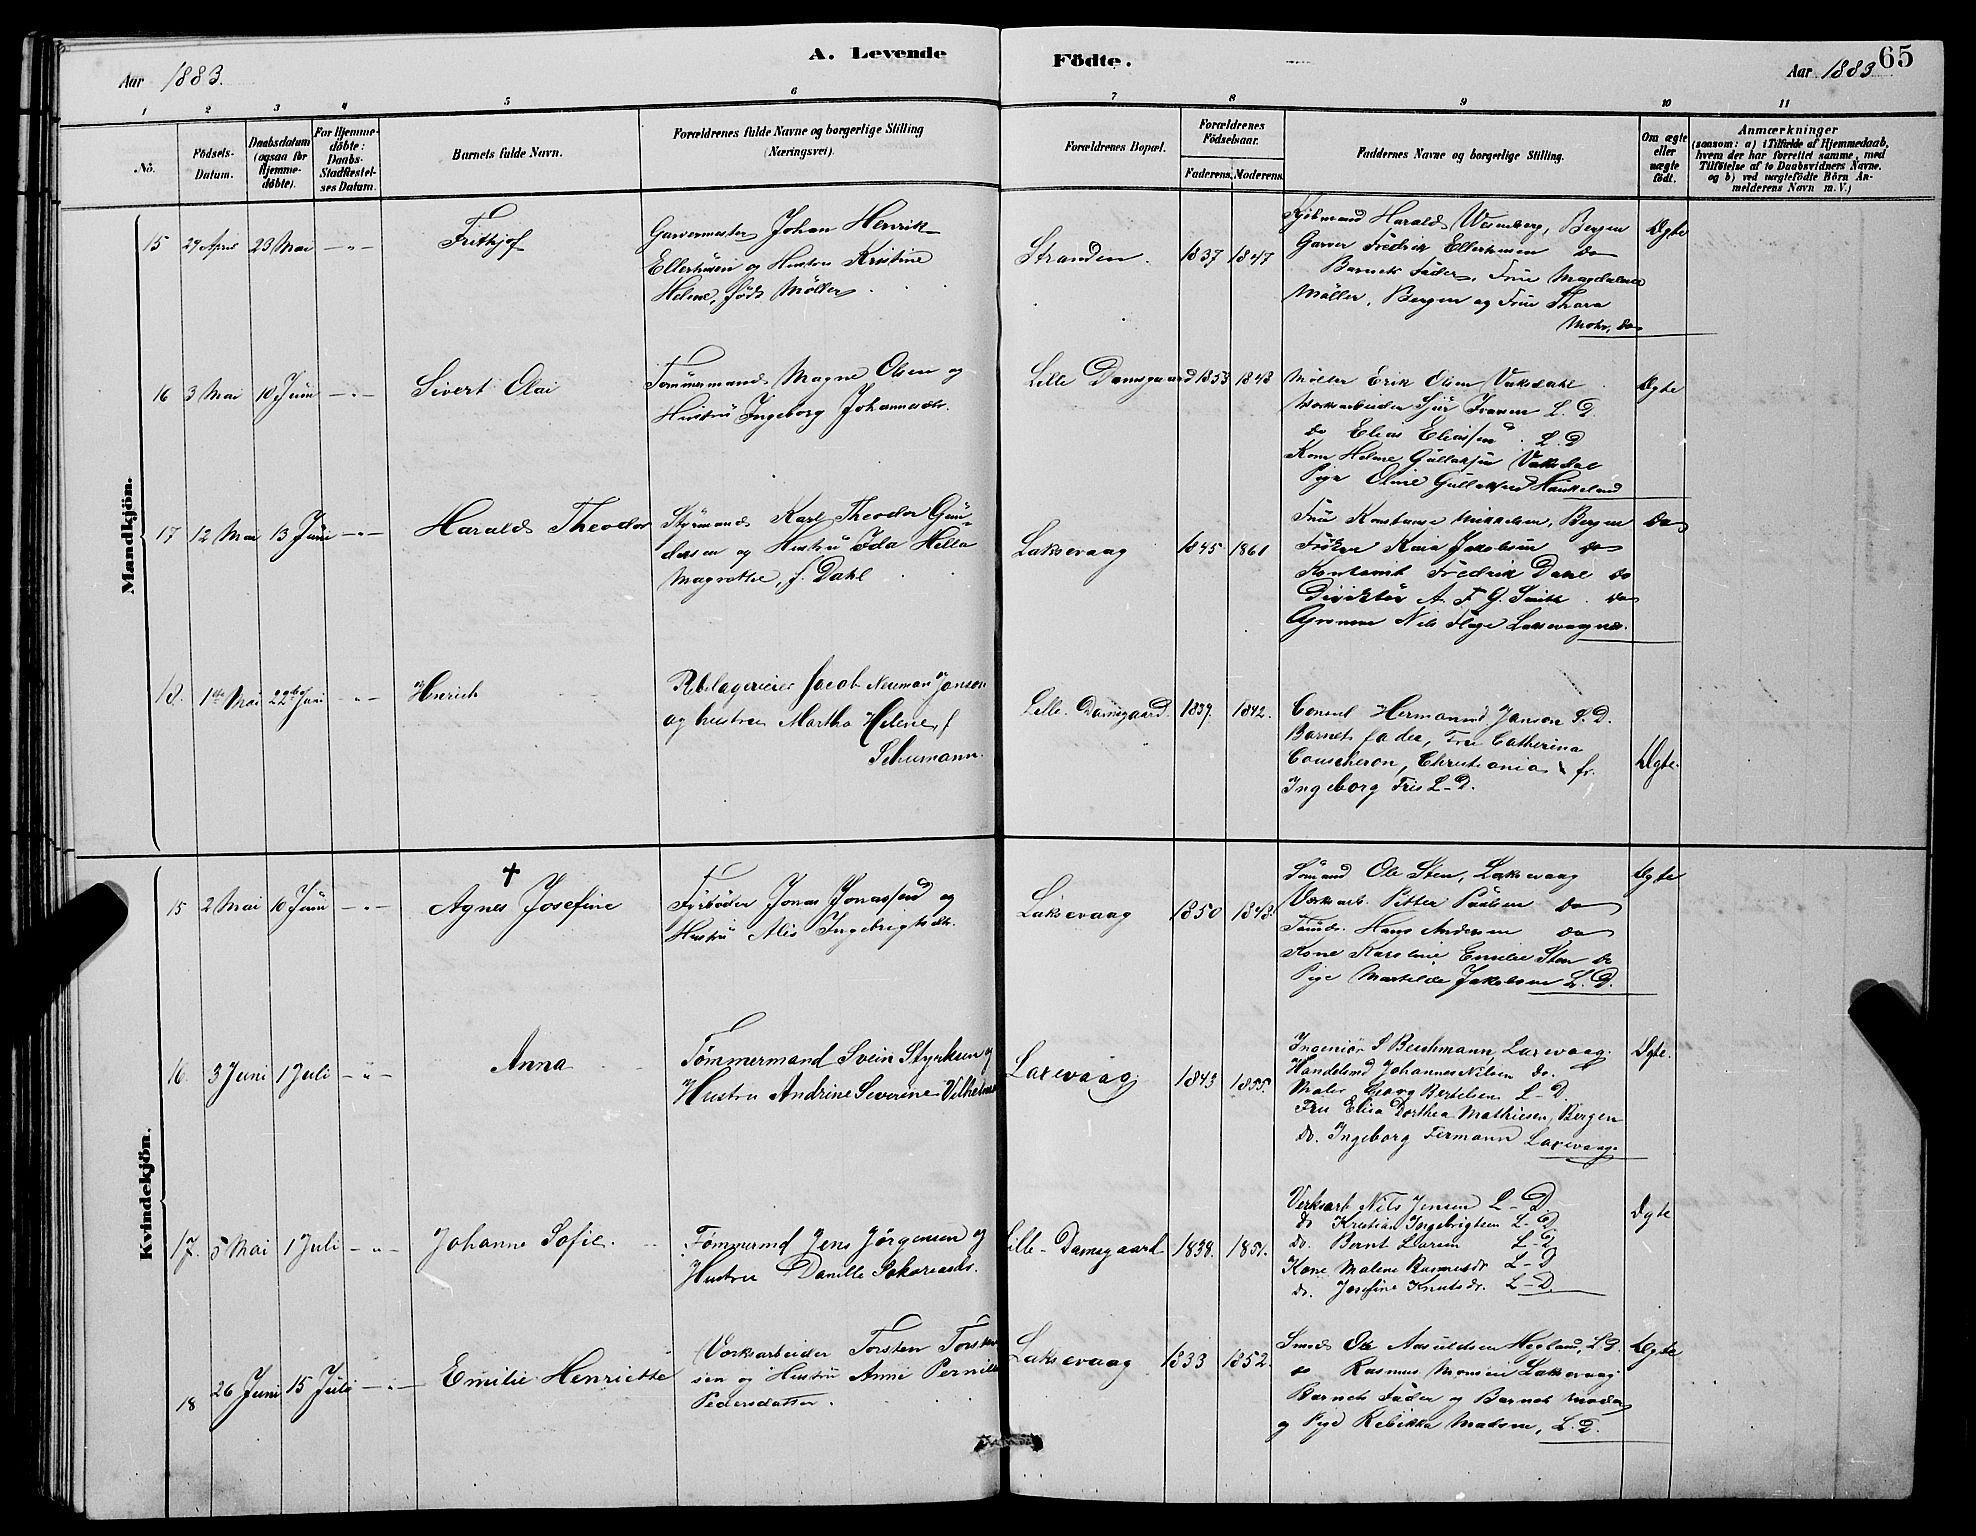 A. Levende Födte.
65
Aar 1883.
Aar 1883
1 2 3 4 5 6 7 8 9 10 11
No.
Födsels-
Datum.
Daabsdatum
(ogsaa for
Hjemme-
döbte).
For Hjemme-
döbte:
Daabs-
Stadfæstel-
ses Datum.
Barnets fulde Navn.
Forældrenes fulde Navne og borgerlige Stilling
(Næringsvei).
Forældrenes Bopæl.
Forældrenes
Födselsaar.
Faderens. Moderens.
Faddernes Navne og borgerlige Stilling.
Om ægte
eller
uægte
födt.
Anmærkninger
(saasom: a) i Tilfælde af Hjemmedaab,
hvem der har forrettet samme, med
Tilföielse af to Daabsvidners Navne.
og b) ved uægtefödte Börn An-
melderens Navn m. V.)
Mandkjön.
15 29 April 23 Mai - " - Frithjof
Garvermester Johan Henrik
Ellerhusen og Hustru Kristine
Helene, født Møller
Stranden. 1837 1847
Kjøbmand Harald Wesenberg, Bergen
Garver Fredrik Ellerhusen do
Barnets Fader, Frue Magdalene
Møller, Bergen og Frue Thora
Mohr, do
Ægte
16 3 Mai 10 Juni - " - Sivert Olai
Tømmermand Magne Olsen og
Hustru Ingeborg Johannesdr.
Lille Damsgaard 1853 1848
Møller Erik Olsen Vaksdal
Værksarbeider Sjur Iversen L. D.
do Elias Eliassen L. D
Kone Helene Gullaksen Vaksdal
Pige Oline Gullaksen Haukeland
Ægte
17 12 Mai 13 Juni - " - Harald Theodor
Styrmand Karl Theodor Gun-
dersen og Hustru Ida Hella
Magrethe, f. Dahl
Laksevaag 1845 1861
Frue Konstanse Mikkelsen, Bergen
Frøken Kaia Jakobsen do
Kontorist Fredrik Dahl do
Direktør A. F. G. Smith do
Agronom Nils Flage Laksevaagnes.
do
18. 1ste Mai 22de Juni - " - Henrich
Rebslagereier Jacob Neuman Janson
og hustru Martha Helene f
Schumann.
Lille-Damsgaard 1839. 1842.
Consul Hermannd Janson L. D.
Barnets fader, Frue Catherina
Coucheron, Christiania fr.
Ingeborg Friis L-D.
Ægte.
Kvindekjön.
†
15 2 Mai 10 Juni - " - Agnes Josefine
Fyrbøder Jonas Jonassen og
Hustru Alis Ingebrigtsdtr.
Laksevaag 1850 1848.
Sømand Ole Sten, Laksevaag
Værksarb. Petter Paulsen do
Tømdr. Hans Andersen do
Kone Karoline Emilie Sten do
Pige Martilde Jakobsen L. D.
Ægte
16. 3 Juni 1 Juli - " - Anna
Tømmermand Svein Styrksen og
Hustru Andrine Severine Vilhelmsd
Laxevaag 1843 1855.
Ingeniør S Beichmann, Laxevaag.
Handelsmd Johannes Nilsen do.
Maler Georg Bertelsen L-D.
Fru Elisa Dorthea Mathiesen, Bergen
do. Ingeborg Fermann Laxevaag.
Ægte.
17. 5 Mai 1 Juli - " - Johanne Sofie.
Tømmermd Jens Jørgensen og
Hustru Danille Sakariasds.
Lille-Damsgaard 1838. 1851.
Verksarb Nils Jensen L-D.
do Kristian Ingebrigtsen L-D.
do. Bernt Larsen L-D
Kone Malene Rasmusdr L-D
do. Josefine Knutsdr. L-D.
Ægte
18 26 Juni 15 Juli - " - Emilie Henriette
Værksarbeider Torsten Torsten
sen og Hustru Anne Pernille
Pedersdatter.
Laksevaag 1833 1852.
Smed Ole Asuldsen Hegland, L. D.
do Rasmus Monsen Laksevaag
Barnets Fader og Barnets Moder
og Pige Rebikka Madsen, L. D.
Ægte